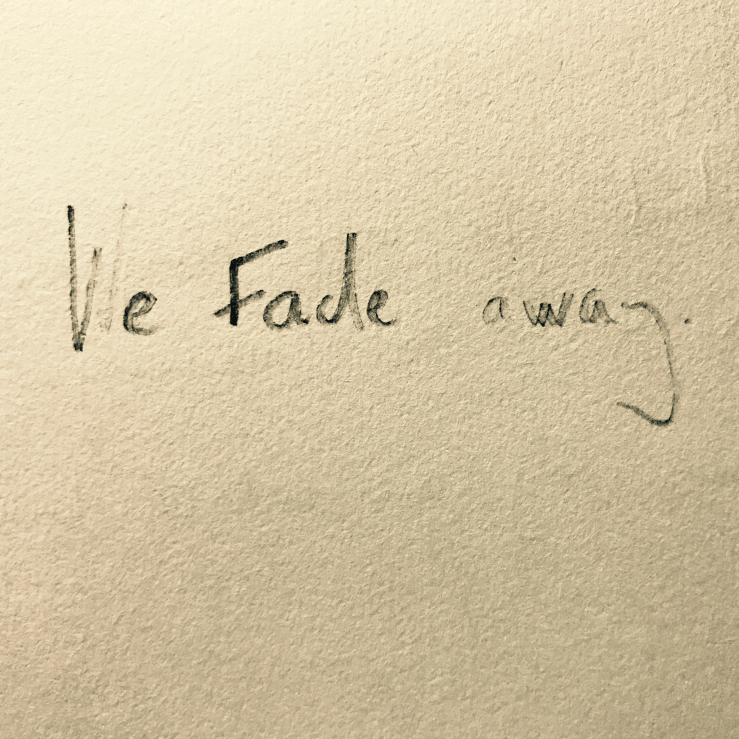 We Fade away.